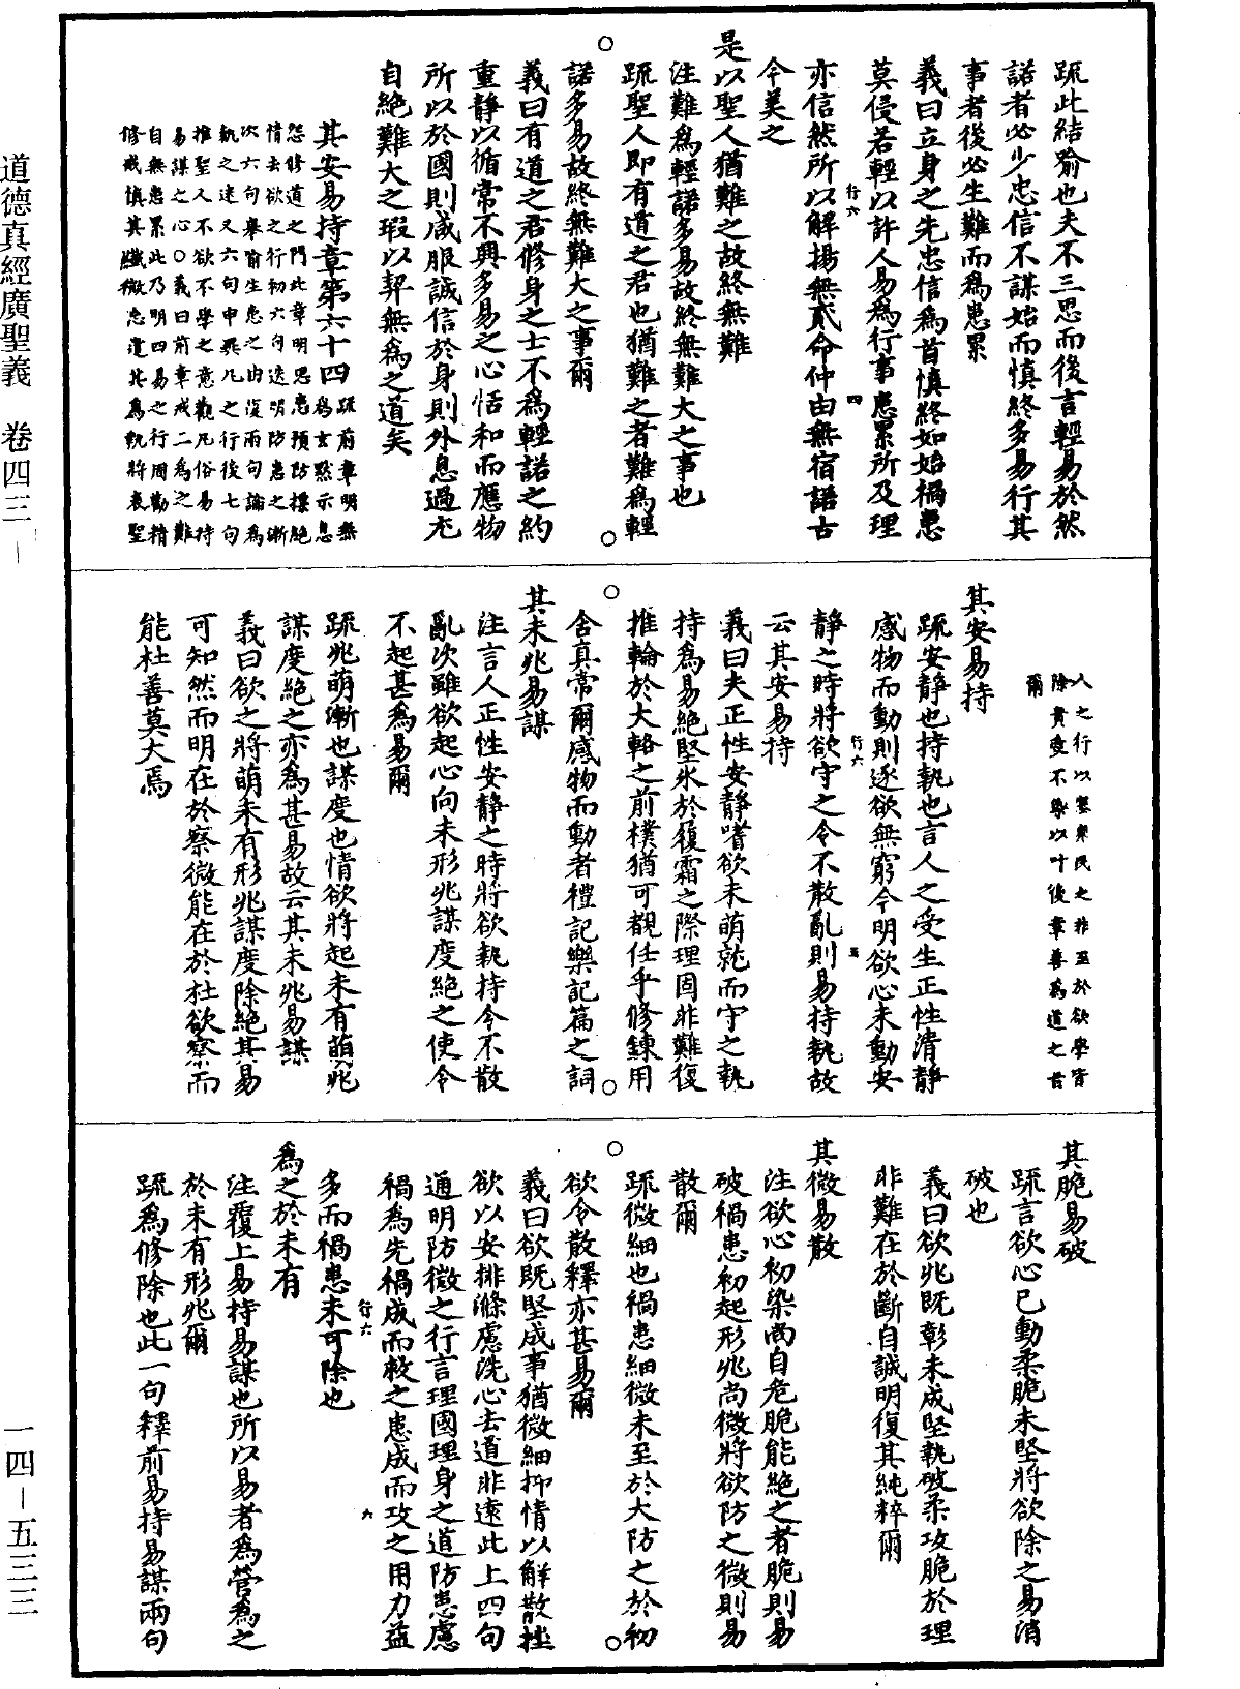 疏此結喻也夫不三思而後言輕易於然
諾者必少忠信不謀始而慎終多易行其
事者後必生難而為患累
義曰立身之先忠信為首慎終如始禍患
莫侵若輕以許人易為行事患累所及理
亦信然所以解揚無貳命仲由無宿諾古
今美之
是以聖人猶難之故終無難
注難為輕諾多易故終無難大之事也
疏聖人即有道之君也猶難之者難為輕
諾多易故終無難大之事爾
義曰有道之君修身之士不為輕諾之約
重靜以循常不興多易之心恬和而應物
所以於國則咸服誠信於身則外息過尤
自絕難大之瑕以契無為之道矣
其安易持章第六十四
疏前章明無
為玄默示息
怨修道之門此章明思患預防摽絕
情去欲之行初六句迭明防患之漸
次六句舉喻生患之由復兩句論為
執之迷又六句申界凡之行後七句
推聖人不欲不學之意觀凡俗易持
易謀之心○義曰前章戒二為之難
自無患累此乃明四易之行周勸精
修戒慎其纖微忽遣其為執將表聖
人之行以塞眾民之非至於欲學皆
除貴愛不染以叶後章善為道之旨
爾
其安易持
疏安靜也持執也言人之受生正性清靜
感物而動則逐欲無窮今明欲心未動安
靜之時將欲守之令不散亂則易持執故
云其安易持
義曰夫正性安靜嗜欲未萌就而守之執
持為易絕堅氷於履霜之際理固非難復
推輪於大輅之前樸猶可覩任乎修鍊用
含真常爾感物而動者禮記樂記篇之詞
其未兆易謀
注言人正性安靜之時將欲執持令不散
亂次雖欲起心向未形兆謀度絕之使令
不起甚為易爾
疏兆萌漸也謀度也情欲將起未有萌兆
謀度絕之亦為甚易故云其未兆易謀
義曰欲之將萌未有形兆謀度除絕其易
可知然而明在於察微能在於杜欲察而
能杜善莫大焉
其脆易破
疏言欲心已動柔脆未堅將欲除之易消
破也
義曰欲兆既彰未成堅執破柔攻脆於理
非難在於斷自誠明復其純粹爾
其微易散
注欲心初染尚自危脆能絕之者脆則易
破禍患初起形兆尚微將欲防之微則易
散爾
疏微細也禍患細微未至於大防之於初
欲令散釋亦甚易爾
義曰欲既堅成事猶微細抑情以解散挫
欲以安排滌慮洗心去道非遠此上四句
通明防微之行言理國理身之道防患慮
禍為先禍成而救之患成而攻之用力益
多而禍患未可除也
為之於未有
注覆上易持易謀也所以易者為營為之
於未有形兆爾
疏為修除也此一句釋前易持易謀兩句
行六
四
行六
五
行六
六
道德真經廣聖義　卷四三
一四－五三三